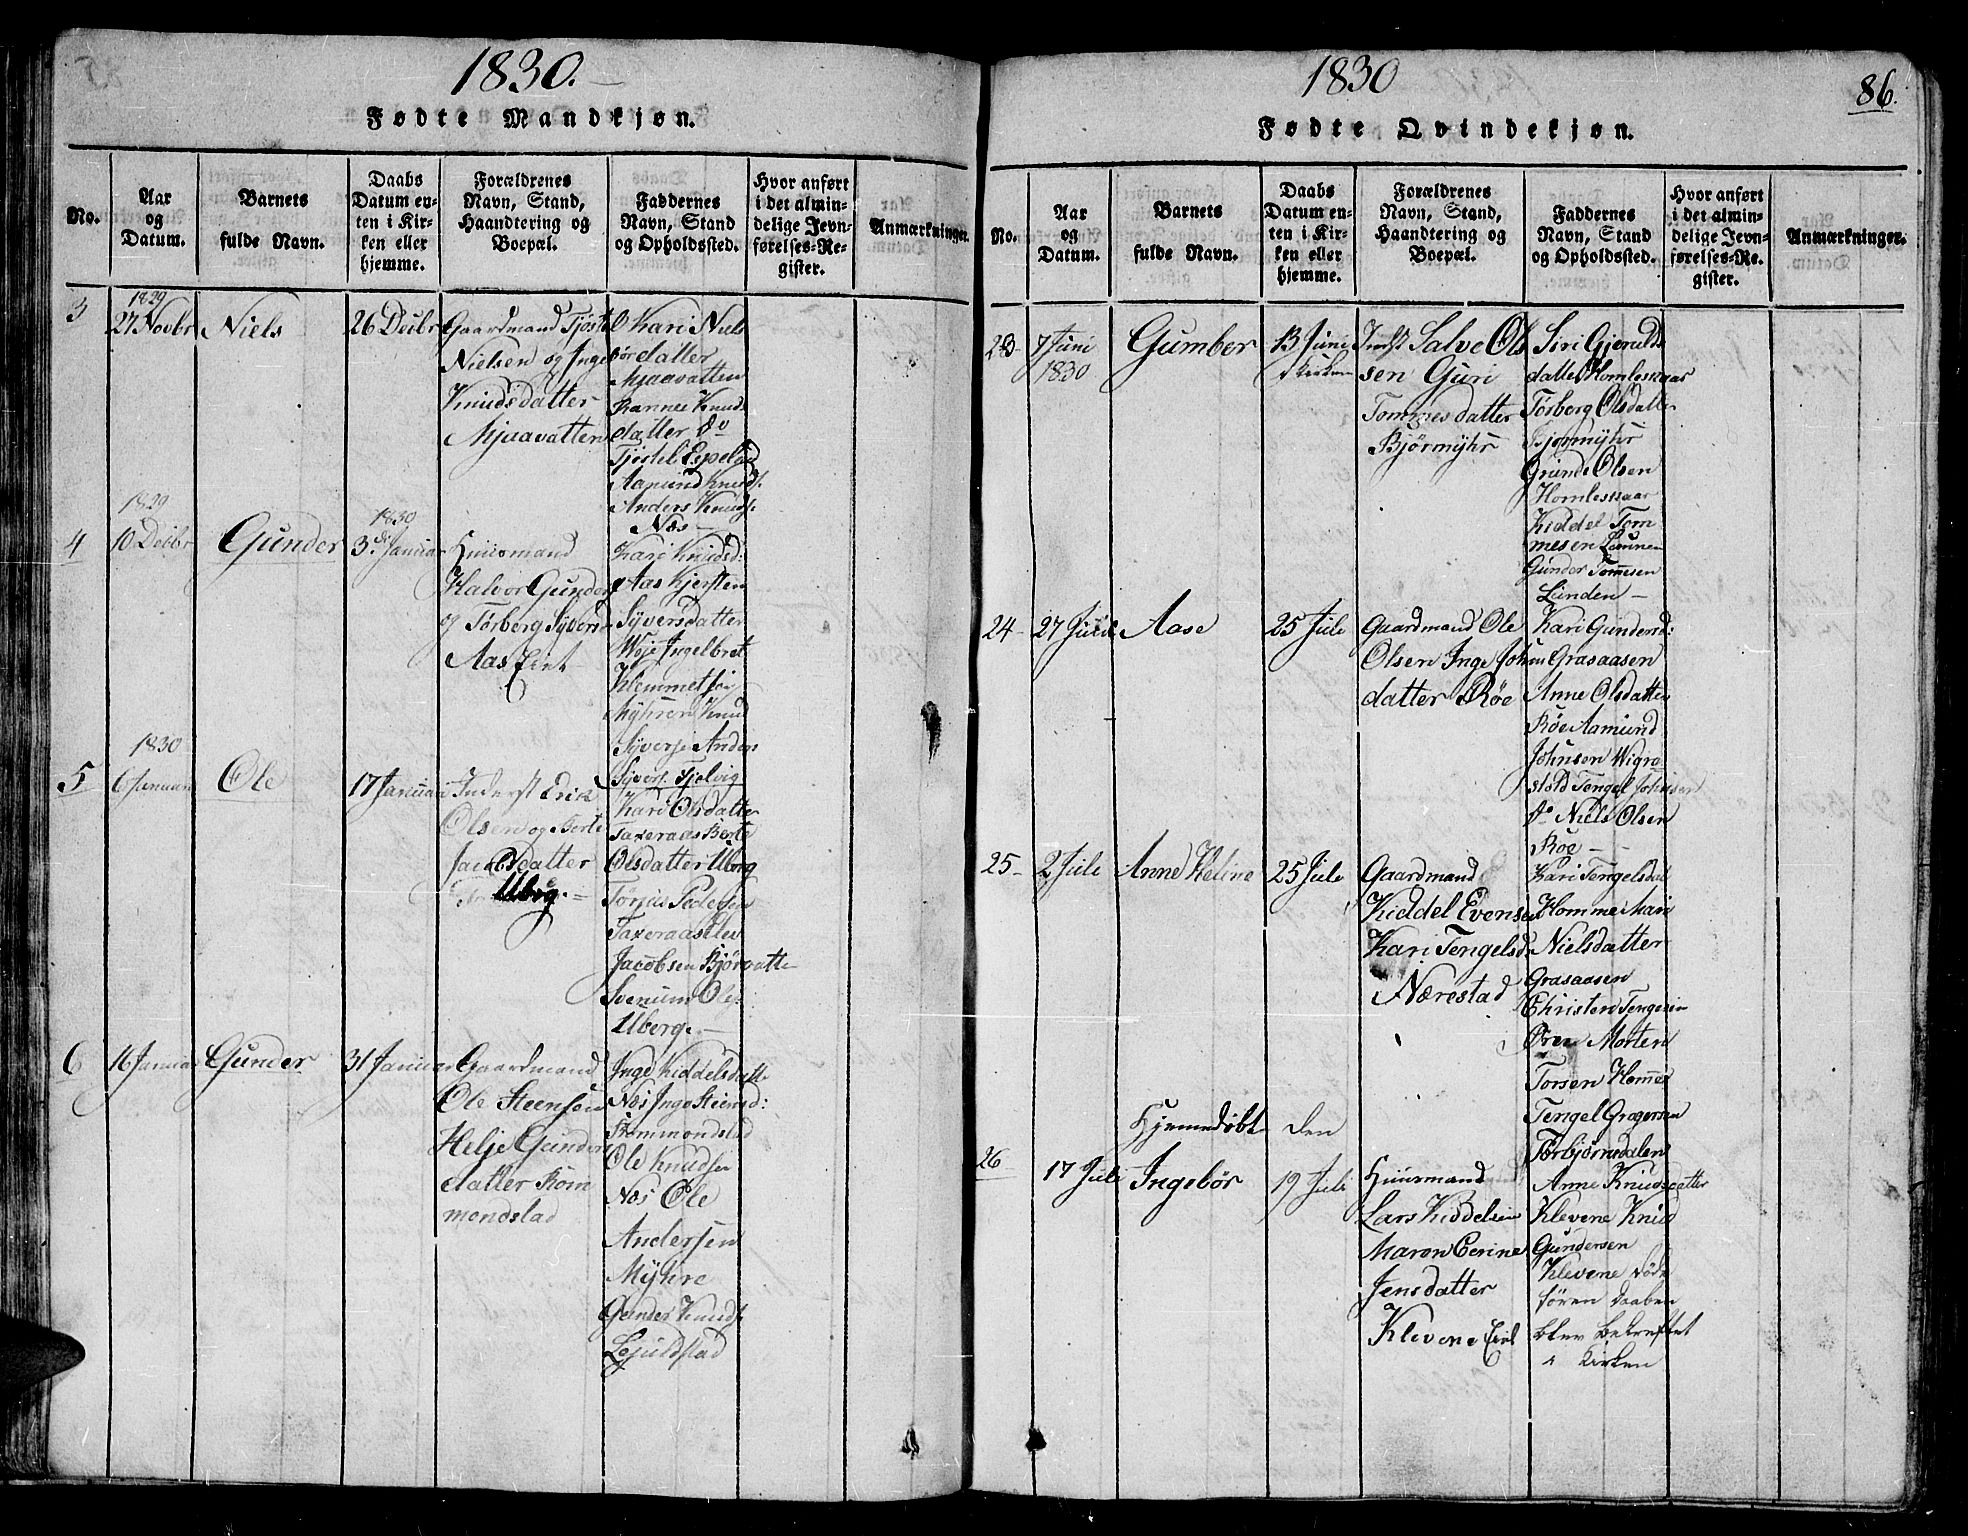 1830.
Fødte Mandkjøn.
No.
Aar
og
Datum.
Barnets
fulde Navn.
Daabs
Datum en-
ten i Kir-
ken eller
hjemme.
Forældrenes
Navn, Stand,
Haandtering og
Boepæl.
Faddernes
Navn, Stand
og Opholdssted.
Hvor anført
i det almin-
delige Jevn-
førelses-Re-
gister.
Anmærkninger.
3
1829
27 Novbr
Niels
26 Decbr
Gaardmand
Nielsen og Inge
Knudsdatter
Mjaavatten
Kari Niels
datter
Mjaavatten
Knuds
datter do
Aamund Knuds.
Anders Knuds.
Næs
4
1829
10 Debbr
Gunder
1830
3. Januar
Huusmand
Halvor Gunders
og Torberg Syvers
Aas Eiet
Kari Knudsd:
Aas Kjersten
Syversdatter
Woje Ingelbret
Klemmetsen
Myhren Knud
Syvers. Anders
Syvers. Fjelvig
5
1830
6 Januar
Ole
17 Januar
Inderst Erik
Olsen og Berte
Jacobsdatter
Uberg.
Kari Olsdatter
Taxeraas Berte
Olsdatter Uberg
Pedersen
Taxeraas
Jacobsen Bjørvatten
Svenum Ole
Uberg.
6
16 Januar
Gunder
31 Januar
Gaardmand
Ole Steensen
Helje Gunders
datter Rom
mondstad
Inge Kiddelsdatte
Næs Inge Steensd:
Rommondstad
Ole Knudsen
Næs Ole
Andersen
Myhre
Gunder Knuds.
Lejulstad
1830
86.
Fødte Qvindekjøn.
No.
Aar
og
Datum.
Barnets
fulde Navn.
Daabs
Datum en-
ten i Kir-
ken eller
hjemme.
Forældrenes
Navn, Stand,
Haandtering og
Boepæl.
Faddernes
Navn, Stand
og Opholdssted.
Hvor anført
i det almin-
delige Jevn-
førelses-Re-
gister.
Anmærkninger.
23
7 Juni
1830
Gumber
13 Juni
i Kirken
Indst Salve Ols
sen Guri
Tommesdatter
Bjørmyhr
Siri Gjeruld
datter Homleskaar
Torberg Olsdatter
Bjørmyhr
Grunde Olsen
Homleskaar
Kiddel Tom
mesen Lunnen
Gunder Tommesen
Lunden
24
27 Juni
Aase
25 Jule
Gaardmand Ole
Olsen Inge Johns
datter Røe
Kari Gundersd:
Grasaasen
Anne Olsdatter
Røe Aamund
Johnsen Wigre
stad Tengel Johnsen
do Niels Olsen
Røe
25
2 Jule
Anne Keline
25 Jule
Gaardmand
Kiddel Evensen
Kari Tengelsd.
Nærestad
Kari Tengelsdat
Homme Mari
Nielsdatter
Grasaasen
Christen Tengesen
Øren Morten
Torsen Homme
Tengel Gregersen
Torbjørnsdalen
26
17 Jule
Hjemedøbt
Ingebør
den
19 Jule
Huusmand
Lars Kiddelsen
Maren Cerine
Jensdatter
Klevene Eiet
Anne Knudsdatter
Klevene Knud
Gundersen
Klevene
føren Daaben
blev bekreftet
i Kirken